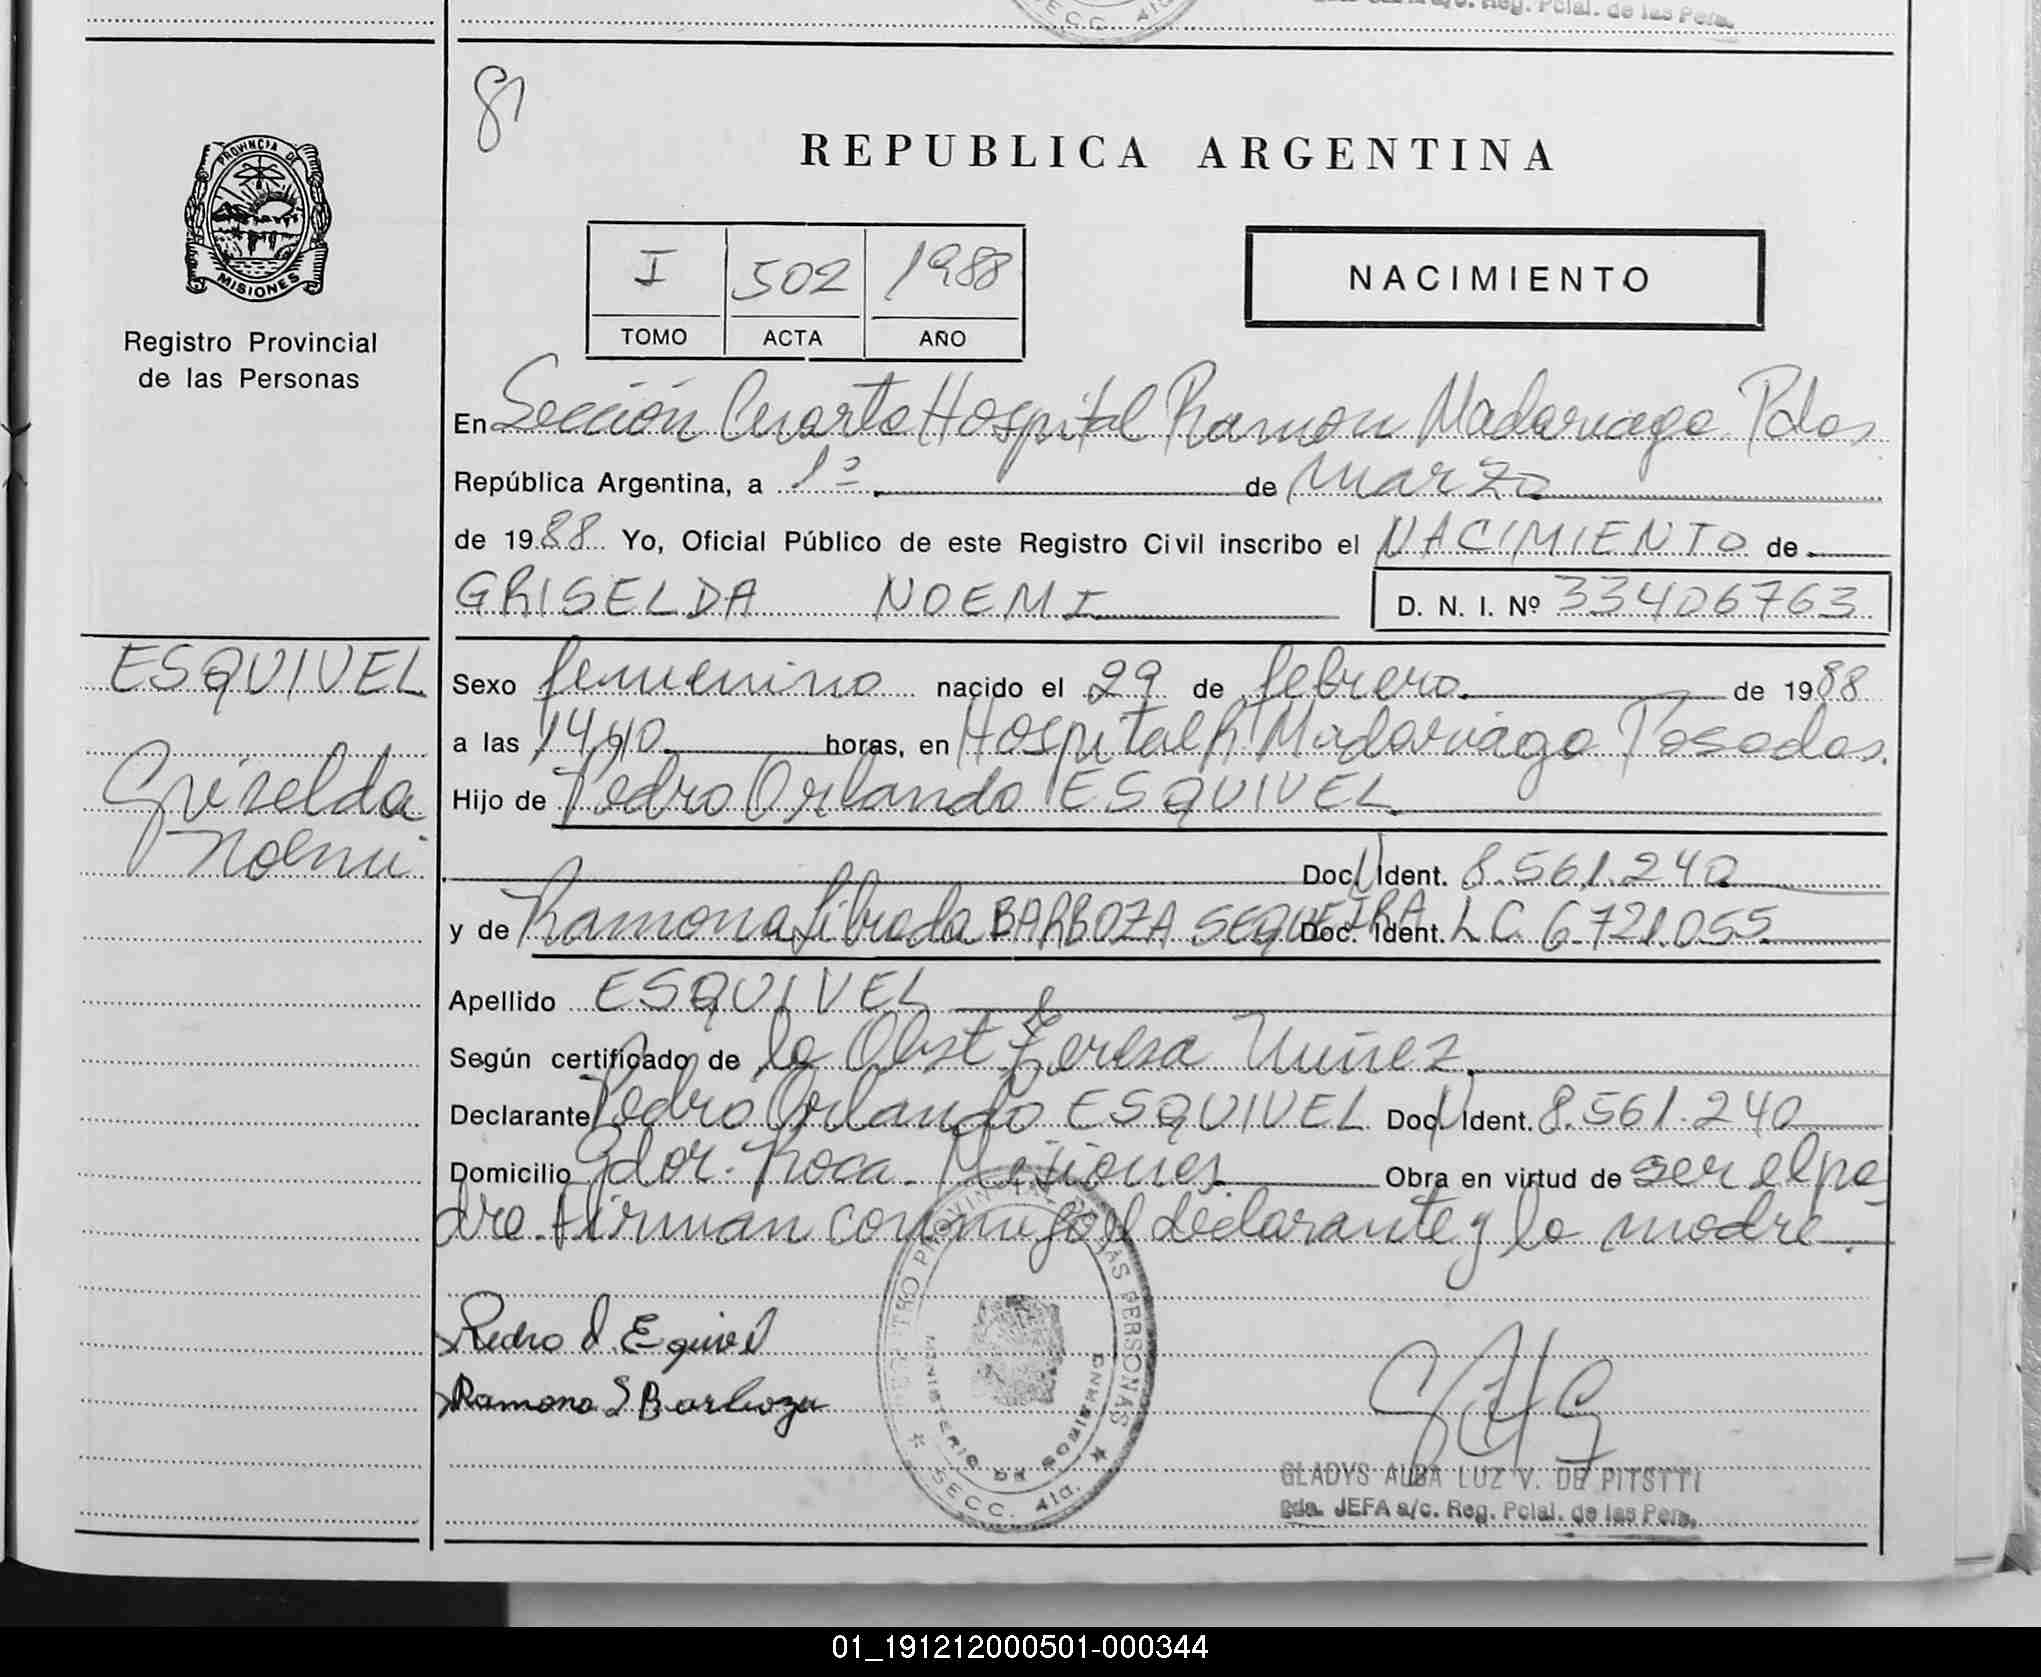 SECC. 4ta.
Reg. Pcial. de las Pers.
81
PROVINCIA DE
MISIONES
Registro Provincial
de las Personas
REPUBLICA ARGENTINA
I 502 1988
TOMO ACTA AÑO
NACIMIENTO
En Sección Cuarta Hospital Ramon Madariaga Pdas
República Argentina, a 1º de marzo
de 1988 Yo, Oficial Público de este Registro Civil inscribo el NACIMIENTO de
GRISELDA NOEMI D. N. I. Nº 33406763
ESQUIVEL
Griselda
Noemi
Sexo femenino nacido el 29 de febrero de 1988
a las 14,10 horas, en Hospital R. Madariaga Posadas.
Hijo de Pedro Orlando ESQUIVEL
Doc. Ident. 8.561.240
y de Ramona Librada BARBOZA SEQUEIRA Doc. Ident. LC 6.721.055
Apellido ESQUIVEL
Según certificado de la Obst Teresa Nuñez
Declarante Pedro Orlando ESQUIVEL Doc. Ident. 8.561.240
Domicilio Gdor. Roca. Misiones Obra en virtud de ser el pa-
dre. Firman conmigo el declarante y la madre.
Pedro O. Equivel
Ramona L Barboza
REGISTRO PROVINCIAL DE LAS PERSONAS
MINISTERIO DE GOBIERNO
SECC. 4ta.
GLADYS ALBA LUZ V. DE PITSTTI
2da. JEFA a/c. Reg. Pcial. de las Pers.
01_191212000501-000344